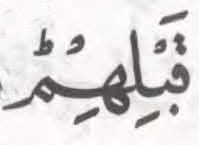 قَبْلِهِمْؕ